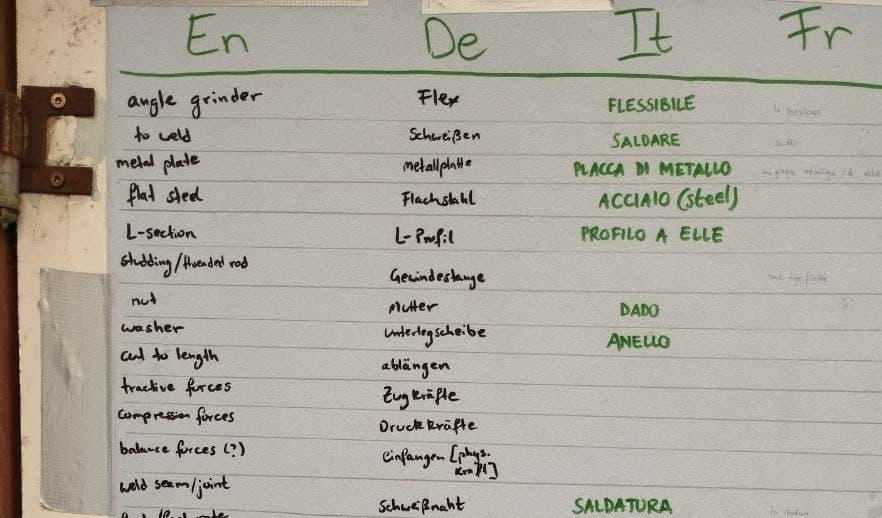 En De It Fr
angle grinder Flex FLESSIBILE la meuleuse
to weld Schweißen SALDARE
metal plate Metallplatte PLACCA DI METALLO
flat steel Flachstahl ACCIAIO (steel)
L-section L-Profil PROFILO A ELLE
studding/threaded rod Gewindestange une tige filetée
nut Mutter DADO
washer Unterlegscheibe ANELLO
cut to length ablängen
tractive forces Zugkräfte
compression forces Druckkräfte
balance forces (?) einfangen [phys. Kraft]
weld seam/joint Schweißnaht SALDATURA